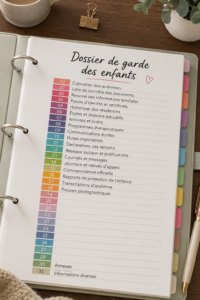 Dossier de garde
des enfants
Calendrier des
Liste de contrôle des documents
Résumé des informations familiales
Pièces d'identité et certificats
Historique des résidences
Écoles et dossiers éducatifs
Activités et loisirs
Programmes thérapeutiques
Communications écrites
Notes importantes
Déclarations des témoins
Réseaux sociaux et publications
Courriels et messages
Journaux et relevés d'appels
Correspondance officielle
Rapports de protection de l'enfance
Transcriptions d'audience
Preuves photographiques
Annexes
Informations diverses